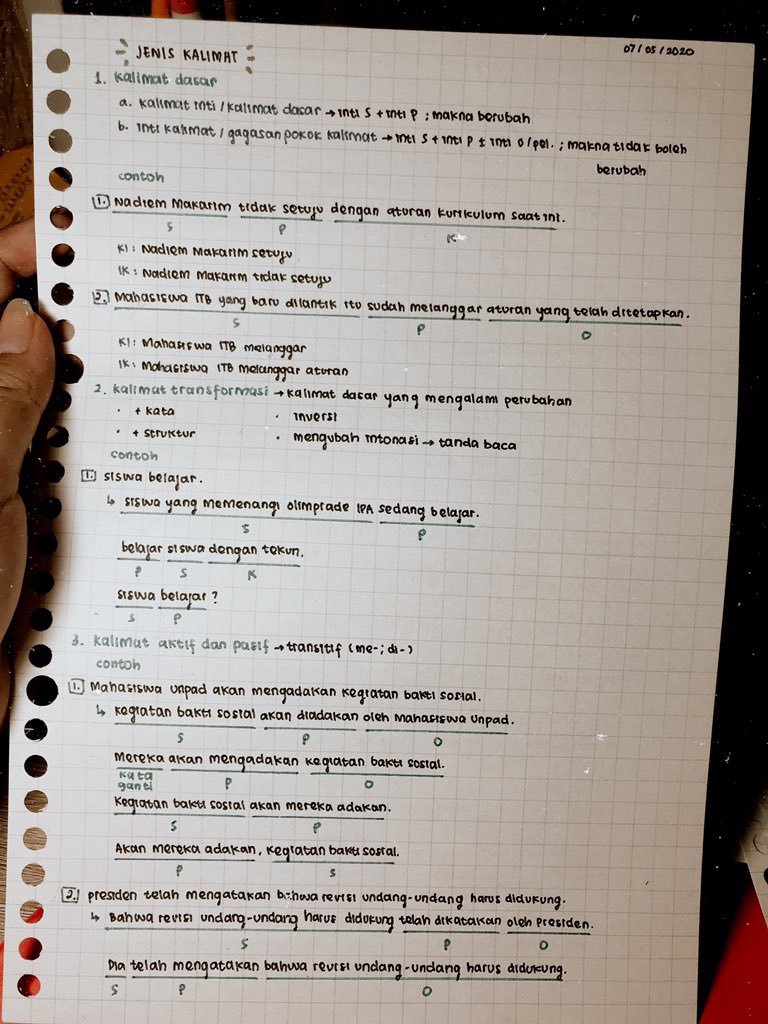 JENIS KALIMAT
07/05/2020
1. kalimat dasar
a. kalimat inti / kalimat dasar → inti S + inti P ; makna berubah
b. inti kalimat / gagasan pokok kalimat → inti S + inti P ± inti O/pel. ; makna tidak boleh
berubah
contoh
1. Nadiem Makarim tidak setuju dengan aturan kurikulum saat ini.
S P K
KI : Nadiem Makarim setuju
IK : Nadiem Makarim tidak setuju
2. Mahasiswa ITB yang baru dilantik itu sudah melanggar aturan yang telah ditetapkan.
S P O
KI : Mahasiswa ITB melanggar
IK : Mahasiswa ITB melanggar aturan
2. kalimat transformasi → kalimat dasar yang mengalami perubahan
· + kata · inversi
· + struktur · mengubah intonasi → tanda baca
contoh
1. siswa belajar.
↳ siswa yang memenangi olimpiade IPA sedang belajar.
S P
belajar siswa dengan tekun.
P S K
siswa belajar ?
S P
3. kalimat aktif dan pasif → transitif (me- ; di-)
contoh
1. Mahasiswa unpad akan mengadakan kegiatan bakti sosial.
↳ kegiatan bakti sosial akan diadakan oleh Mahasiswa Unpad.
S P O
Mereka akan mengadakan kegiatan bakti sosial.
kata ganti P O
Kegiatan bakti sosial akan mereka adakan.
S P
Akan mereka adakan, kegiatan bakti sosial.
P S
2. presiden telah mengatakan bahwa revisi undang-undang harus didukung.
↳ Bahwa revisi undang-undang harus didukung telah dikatakan oleh Presiden.
S P O
Dia telah mengatakan bahwa revisi undang-undang harus didukung.
S P O